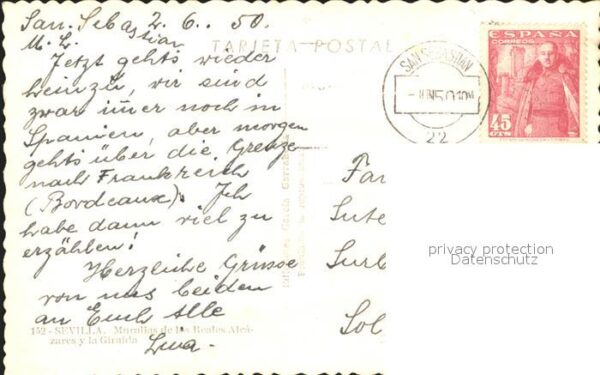 San. Sebastian 2. 6. 50.
M. L.
Jetzt gehts wieder
heimzu, wir sind
zwar imer noch in
Spanien, aber morgen
gehts über die Grenze
nach Frankreich
(Bordeaux). Ich
habe dann viel zu
erzählen!
Herzliche Grüsse
von uns beiden
an Euch Alle
Lina.
152 - SEVILLA. Murallas de los Reales Alcá-
zares y la Giralda
TARJETA POSTAL
SAN SEBASTIAN
JUN 50
22
ESPAÑA
CORREOS
45
CTS
Fa
Sute
Surb
Sol
privacy protection
Datenschutz